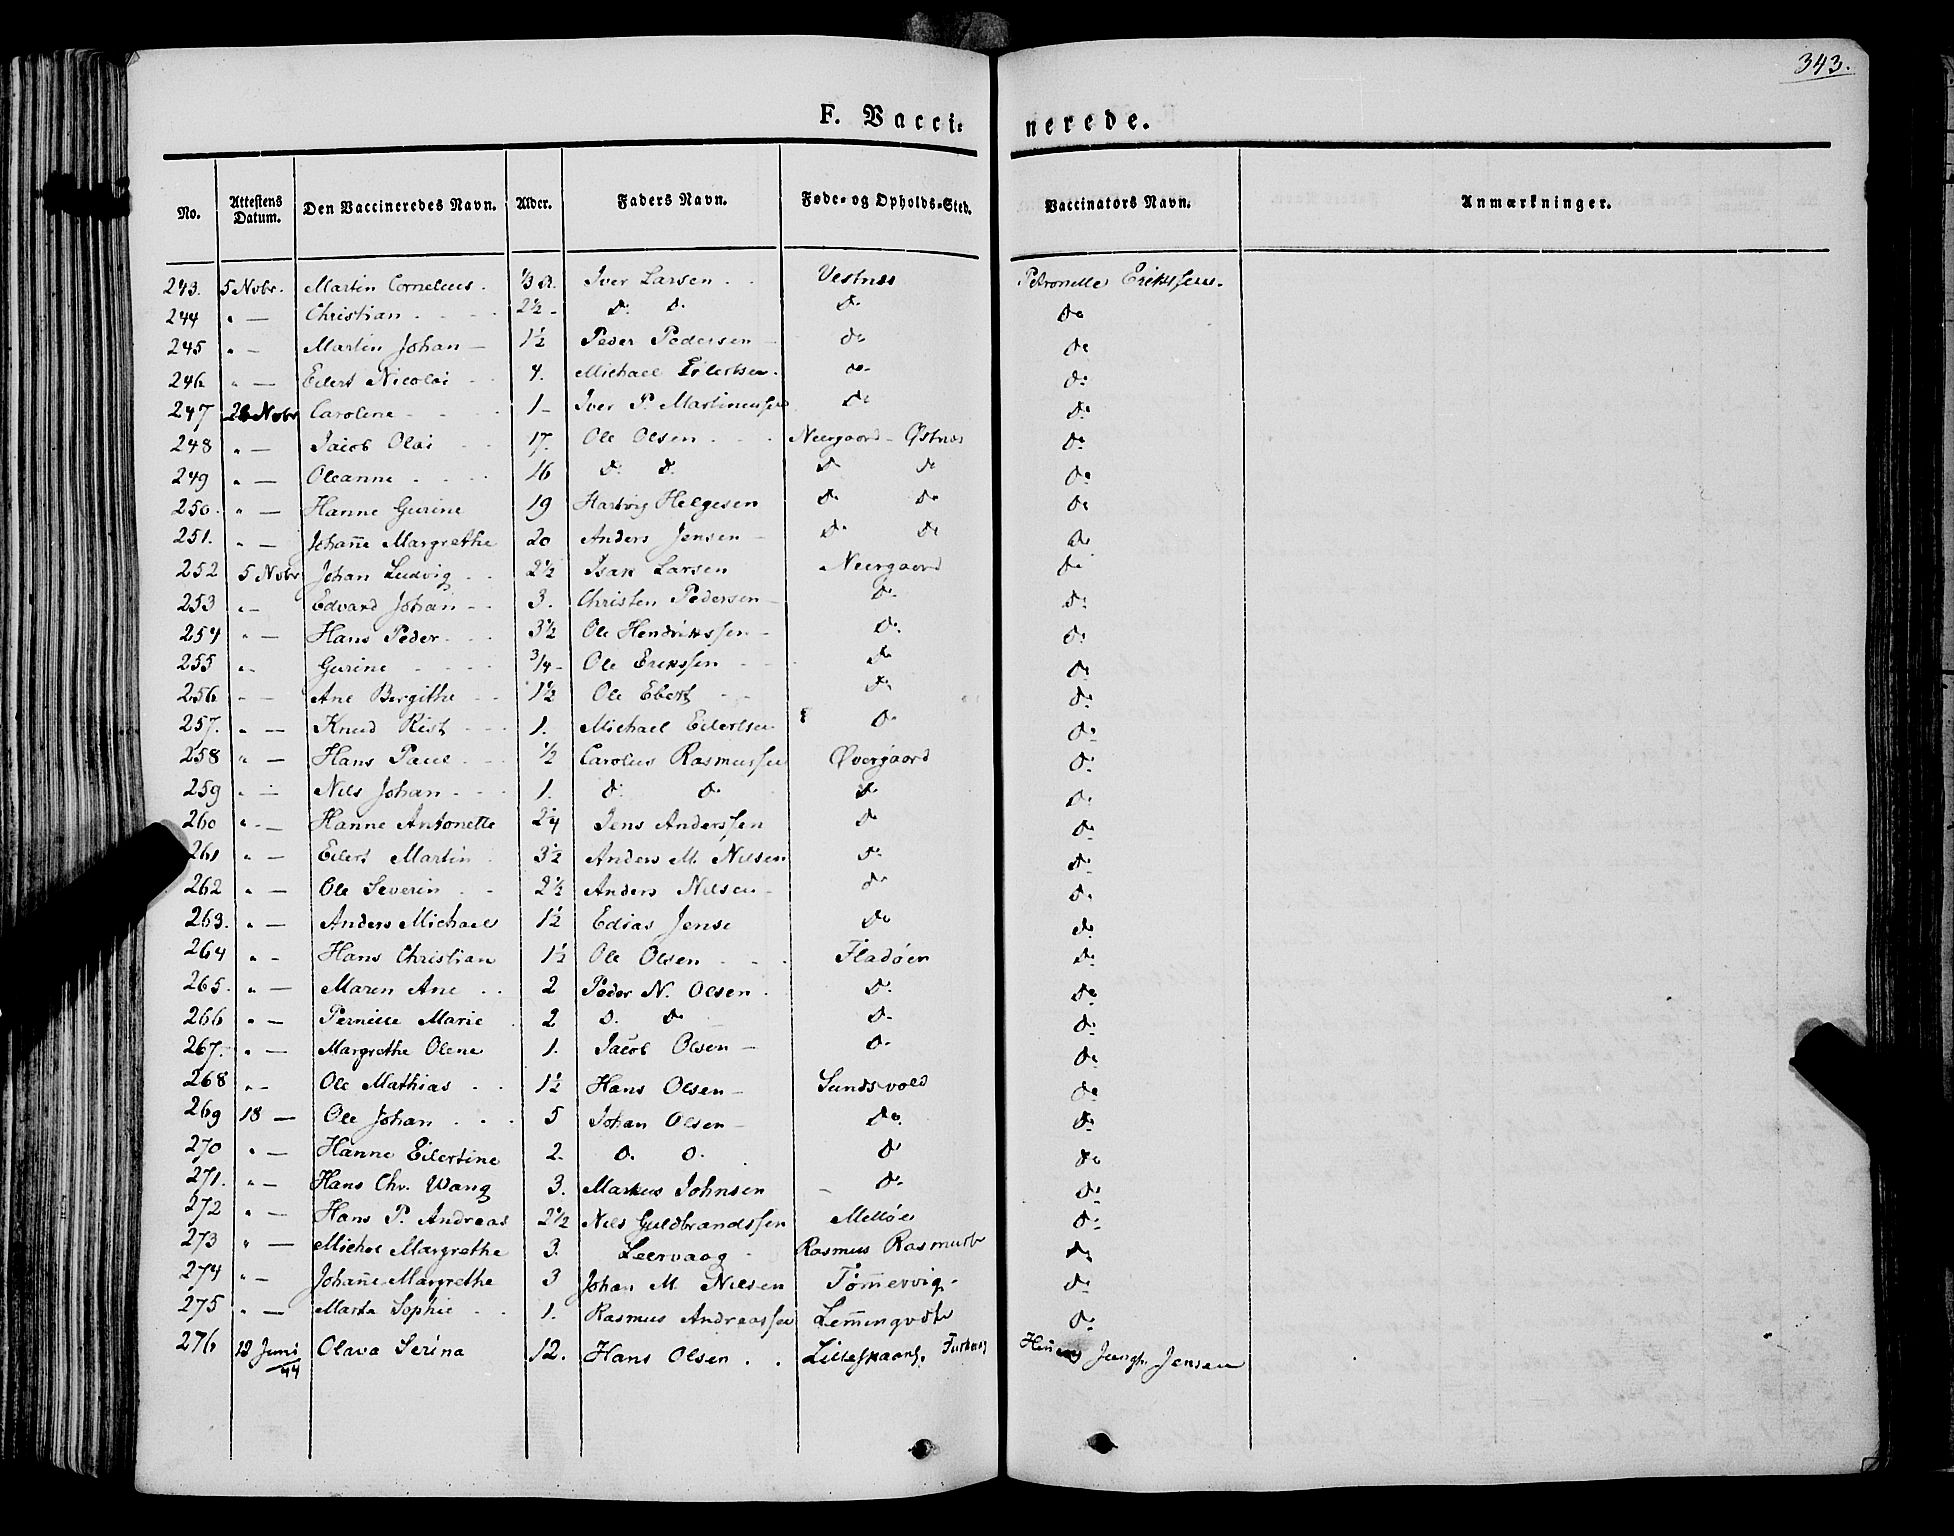 343.
F. Vacci: nerede.
No. Attestens Datum. Den Vaccineredes Navn. Alder. Faders Navn. Føde- og Opholds-Sted. Vaccinators Navn. Anmærkninger.
243. 5 Nobr. Martin Cornelius. 1/3 A. Iver Larsen Vestnæs Petronelle Erikssen.
244 " — Christian 2½ D. D. Do Do
245 " — Martin Johan — 1½ Peder Pedersen — do Do
246 " — Eilert Nicolai 4. Michael Eilertsen. do Do
247 Nobr Caroline 1 — Iver P. Martinussen Do Do
248 " — Jacob Olai 17. Ole Olsen Neergaard - Østnæs Do
249 " — Oleanne 16 D. D. D. do Do
250. " — Hanne Gurine 19 Hartvig Helgesen Do Do Do
251. " — Johanne Margrethe 20 Anders Jensen — Do Do Do
252 5 Nobr Johan Ludvig 2½ Isak Larsen Neergaard Do
253 " — Edvard Johan 3. Christen Pedersen — Do Do
254 " — Hans Peder 3½ Ole Hendrikssen — Do Do
255 " — Gurine 3/4 — Ole Erikssen Do Do
256 " — Ane Bergithe 1½ Ole Ebert Do Do
257. " — Knud Rist 1. Michael Eilertsen Do Do
258 " — Hans Paul 1/2 Carolus Rasmussen Øvergaard Do
259 " — Nils Johan 1. D. Do Do Do
260 " — Hanne Antonette 2¼ Jens Anderssen Do Do
261 " — Eilert Martin 3½ Anders M. Nilsen Do Do
262 " — Ole Severin 2½ Anders Nilsen — do Do
263. " — Anders Michael 1½ Edias Jense Do do
264 " — Hans Christian 1½ Ole Olsen Fladøen Do
265. " — Maren Ane 2 Peder N. Olsen. D. Do
266 " — Pernille Marie 2 D. Do D. Do
267. " — Margrethe Olene 1. Jacob Olsen — D. Do
268 " — Ole Mathias 1½ Hans Olsen — Sundsvold Do
269 18 — Ole Johan 5 Johan Olsen — Do. Do
270 " — Hanne Eilertine 2. D. D. Do Do
271. " — Hans Chr. Wang 3. Markus Johnsen — Do Do
272 " — Hans P. Andreas 2½ Nils Guldbrandssen Melløe Do
273 " — Margrethe 3. Leervaag Rasmus Do
274 " — Johanne Margrethe 3 Johan M. Nilsen Tømmervig. Do
275 " — Marta Sophie 1. Rasmus Andreassen Do
276 12 Juni/44 Olava Serina 12. Hans Olsen Jensen